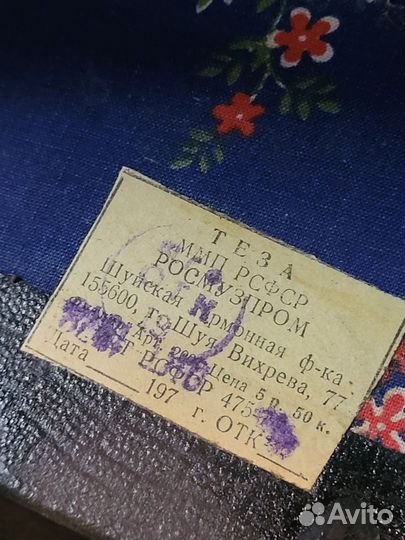 ТЕЗА
ММП РСФСР
РОСМУЗПРОМ
Шуйская гармонная ф-ка
155600, г. Шуя Вихрева, 77
Арт. Цена 5 р. 50 к.
РСФСР 475
Дата 197 г. ОТК
Avito